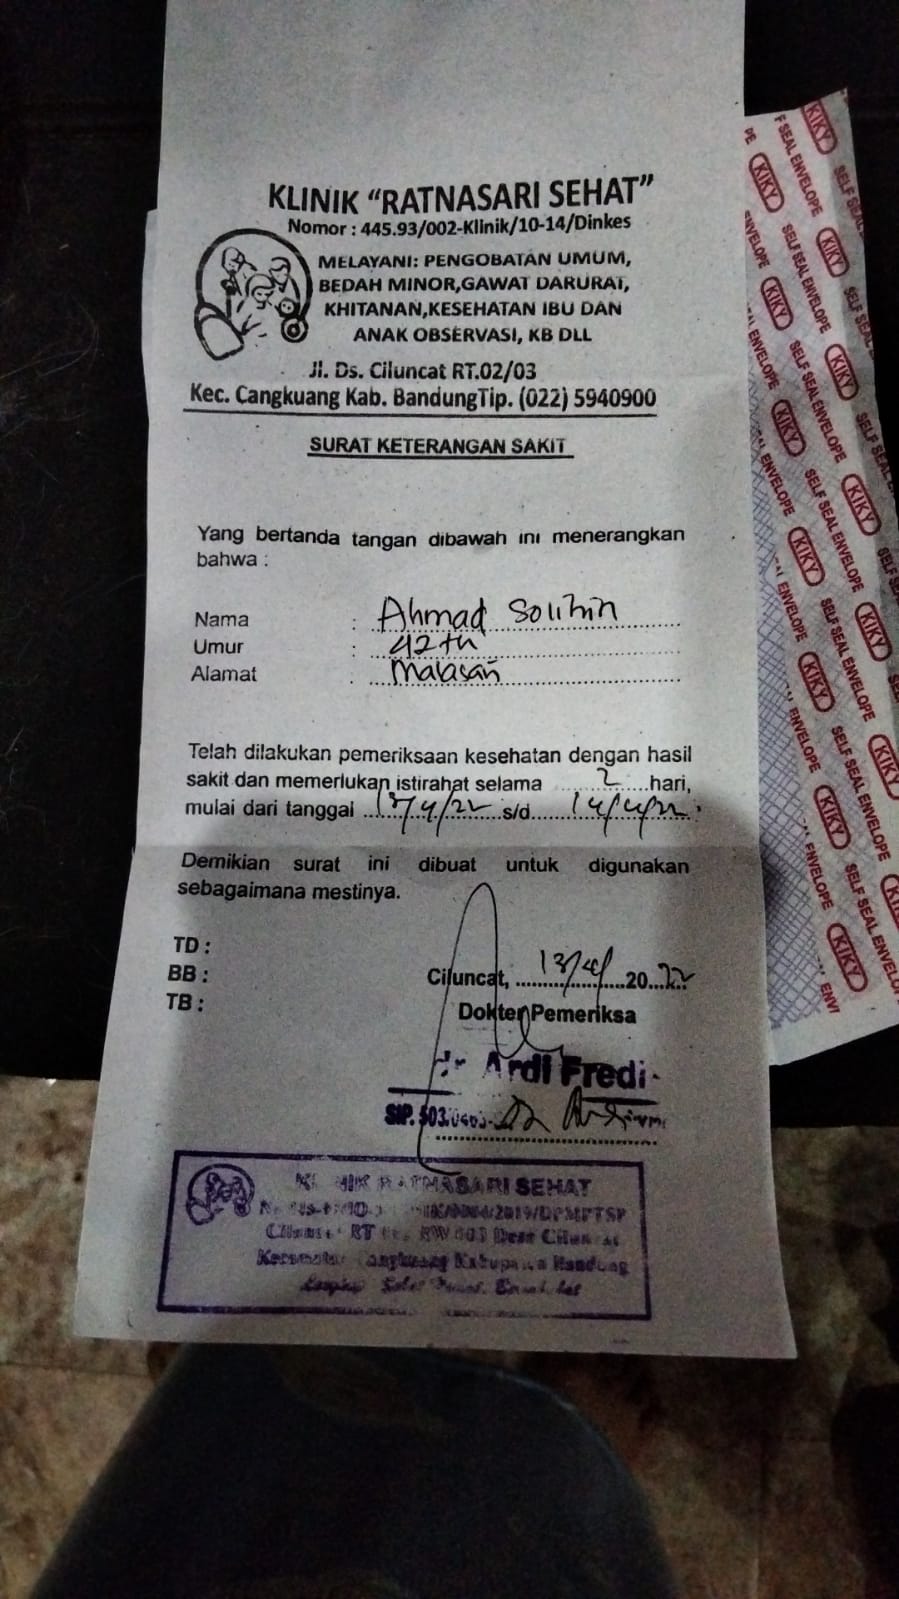 KLINIK "RATNASARI SEHAT"
Nomor : 445.93/002-Klinik/10-14/Dinkes
MELAYANI: PENGOBATAN UMUM,
BEDAH MINOR,GAWAT DARURAT,
KHITANAN,KESEHATAN IBU DAN
ANAK OBSERVASI, KB DLL
Jl. Ds. Ciluncat RT.02/03
Kec. Cangkuang Kab. BandungTlp. (022) 5940900
SURAT KETERANGAN SAKIT
Yang bertanda tangan dibawah ini menerangkan
bahwa :
Nama : Ahmad Solihin
Umur : 42 th
Alamat : Malasari
Telah dilakukan pemeriksaan kesehatan dengan hasil
sakit dan memerlukan istirahat selama 2 hari,
mulai dari tanggal 13/4/22 s/d 14/4/22
Demikian surat ini dibuat untuk digunakan
sebagaimana mestinya.
TD :
BB :
TB :
Ciluncat, 13/4/ 2022
Dokter Pemeriksa
dr Ardi Fredi
SIP. 503.
KLINIK RATNASARI SEHAT
KIKY
SELF SEAL ENVELOPE
KIKY
SELF SEAL ENVELOPE
KIKY
SELF SEAL ENVELOPE
KIKY
SELF SEAL ENVELOPE